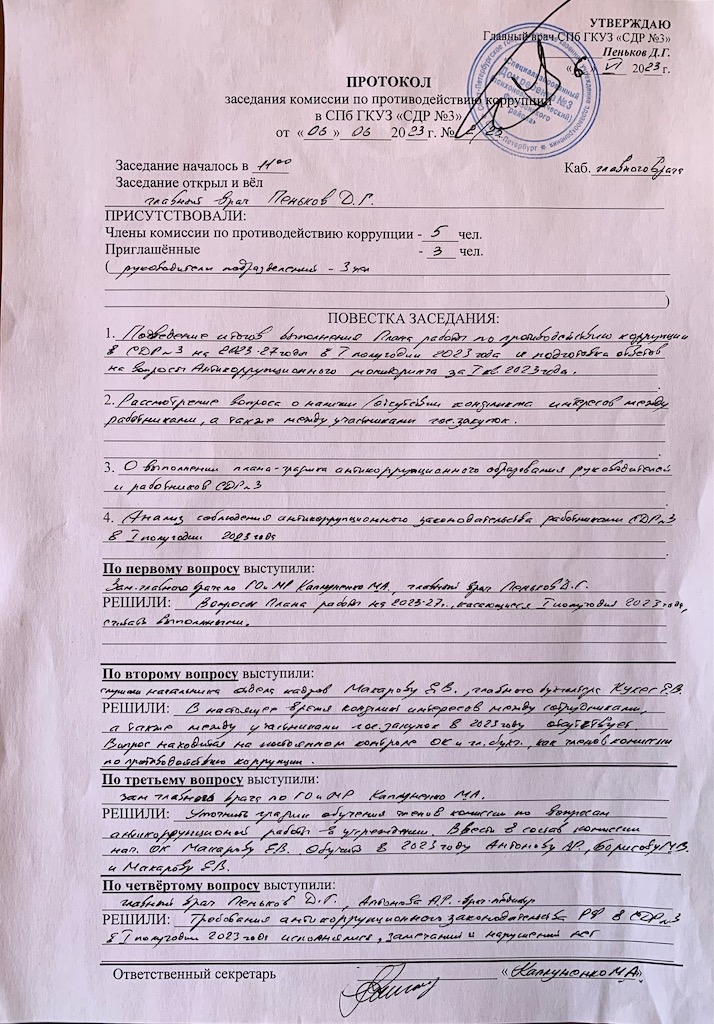 УТВЕРЖДАЮ
Главный врач СПб ГКУЗ «СДР №3»
Пеньков Д.Г.
«6» VI 2023 г.
ПРОТОКОЛ
заседания комиссии по противодействию коррупции
в СПб ГКУЗ «СДР №3»
от «06» 06 2023 г. №
Заседание началось в 11⁰⁰ Каб. главного врача
Заседание открыл и вёл
главный врач Пеньков Д.Г.
ПРИСУТСТВОВАЛИ:
Члены комиссии по противодействию коррупции - 5 чел.
Приглашённые - 3 чел.
( руководители подразделений - 3 чел
)
ПОВЕСТКА ЗАСЕДАНИЯ:
1. Подведение итогов выполнения Плана работы по противодействию коррупции
в СДР№3 на 2023-27 годы в I полугодии 2023 года и подготовка ответов
на вопросы Антикоррупционного мониторинга за I кв. 2023 года.
2. Рассмотрение вопроса о наличии /отсутствии конфликта интересов между
работниками, а также между участниками гос.закупок.
3. О выполнении плана-графика антикоррупционного образования руководителей
и работников СДР№3
4. Анализ соблюдения антикоррупционного законодательства работниками СДР№3
в I полугодии 2023 года
По первому вопросу выступили:
Зам.главного врача по ГО и МР Каплуненко М.А., главный врач Пеньков Д.Г.
РЕШИЛИ: Вопросы Плана работы на 2023-27г., касающиеся I полугодия 2023 года,
считать выполненными.
По второму вопросу выступили:
слушали начальника отдела кадров Макарову Е.В., главного бухгалтера Кукес Е.В.
РЕШИЛИ: В настоящее время конфликт интересов между сотрудниками,
а также между участниками гос.закупок в 2023 году отсутствует.
Вопрос находится на постоянном контроле ОК и гл.бухг., как членов комиссии
по противодействию коррупции.
По третьему вопросу выступили:
Зам главного врача по ГО и МР Каплуненко М.А.
РЕШИЛИ: Уточнить график обучения членов комиссии по вопросам
антикоррупционной работы в учреждении. Ввести в состав комиссии
нач. ОК Макарову Е.В. Обучить в 2023 году Антонову А.Р., Борисову М.В.
и Макарову Е.В.
По четвёртому вопросу выступили:
главный врач Пеньков Д.Г., Антонова А.Р. - врач-педиатр
РЕШИЛИ: Требования антикоррупционного законодательства РФ в СДР№3
в I полугодии 2023 года исполнялись, замечаний и нарушений нет
Ответственный секретарь «Каплуненко М.А.»